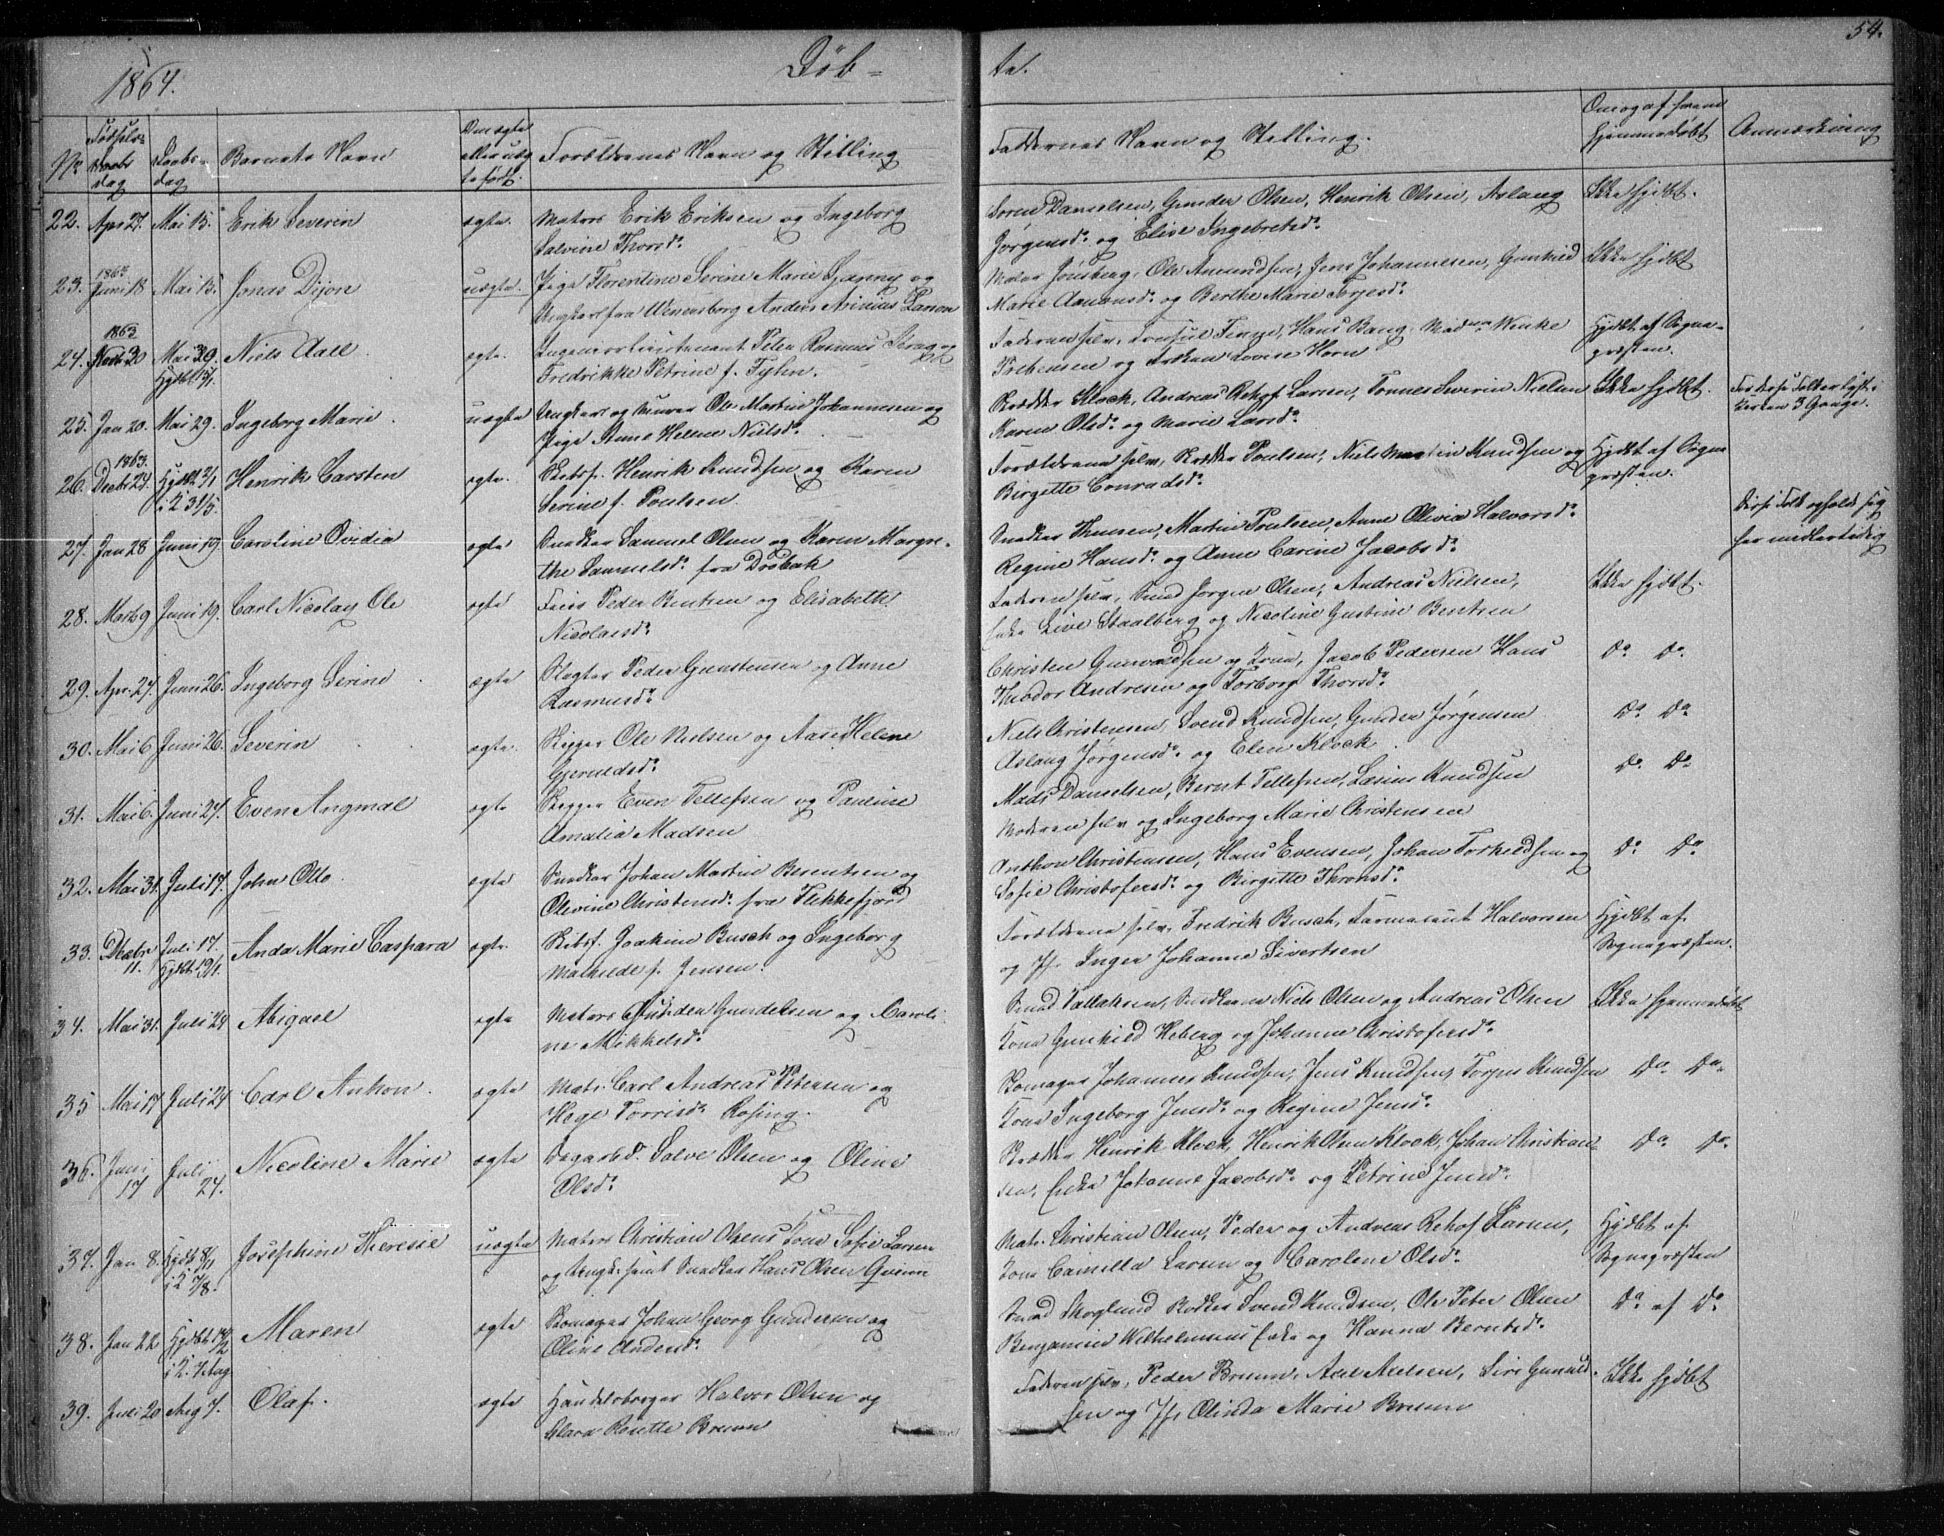 1864. Døb-
te.
54.
No
Fødsels-
dag
Daabs-
dag
Barnets Navn
Om ægte
eller uæg
te født.
Forældrenes Navn og Stilling
Faddernes Navn og Stilling.
Om og af hvem
hjemmedøbt
Anmærkning
22. Apr 27. Mai 15. Erik Severin ægte. Matros Erik Eriksen og Ingeborg
Salvine Thorsd.
Søren Danielsen, Gunder Olsen, Henrik Olsen, Aslaug
Jørgensd. og Elise Ingebretsd.
Ikke hjdbt.
23. 1863 Juni 18 Mai 15. Jonas Dijon uægte. Pige Florentine Serine Marie
Ungkarl fra Wenersborg Anders Larson
Maler Jonsberg, Ole Amundsen, Jens Johannesen, Gunhild
Marie og Berthe Marie
Ikke hjdbt
24. 1863 30 Mai 29, Hjdbt Niels Aall ægte. Ingeniørlieutenant Peter Rasmus
Fredrikke Petrine f.
Faderen selv, Consul Hans Bang, Mad
og Frøken Lovise Horn
Hjdbt af Sogne-
præsten.
25. Jan 20. Mai 29. Ingeborg Marie uægte Ungkarl og Murer Ole Martin Johannesen og
Pige Anne Helene Nielsd.
Rødder Klock, Andreas Rehof Larsen, Tønnes Severin Nielsen
Karen Olsd. og Marie Larsd.
Ikke hjdbt.
3 Gange.
26. 1863. Decbr 27. Hjdbt 3/1
i K 31/5. Henrik Carsten ægte. Skibsf. Henrik Knudsen og Karen
Serine f. Poulsen
Forældrene selv, Poulsen, Niels Martin Knudsen og
Birgitte Conradsd.
Hjdbt af Sogne
præsten.
27. Jan 28 Juni 19. Caroline Ovidia ægte Snedker Samuel Olsen og Karen Margre-
the Samuelsd. fra Drøbak
Snedker Martin Poulsen, Anne Olivia Halvorsd.
Regine Hansd. og Anne Carine Jacobsd.
Disse Folk opholde sig
her midlertidig
28. Mart 29 Juni 19. Carl Nicolay Ole ægte Peder Bentsen og Elisabeth
Nicolaisd.
Faderen selv, Smed Jørgen Olsen, Andreas Nielsen,
Enke Live Staalberg og Nicoline Gustine Bentsen
Ikke hjdbt.
29. Apr. 27. Juni 26. Ingeborg Serine ægte Slagter Peder Gunstensen og Anne
Rasmusd.
Christen Gunvaldsen og Kone, Jacob Pedersen Hans
Theodor Andresen og Torborg Thorsd.
Do Do
30. Mai 6 Juni 26. Severin ægte. Rigger Ole Nielsen og Aase Helene
Gjeruldsd.
Niels Christensen, Svend Knudsen, Gunder Jørgensen
Aslaug Jørgensd. og Elen Klock
Do Do
31. Mai 6. Juni 27. Even Angmal ægte Rigger Even Tellefsen og Pauline
Amalia Madsen
Mads Danielsen, Bernt Tellefsen, Lasius Knudsen
Moderen selv og Ingeborg Marie Christensen
Do Do
32. Mai 31. Juli 17. John Otto ægte Snedker Johan Martin Berentsen og
Olevine Christensd. fra Flekkefjord
Anthon Christensen, Hans Evensen, Johan Torkildsen og
Sofie Christofersd. og Birgitte Thronsd.
Do Do
33. Decbr 11. Juli 17. Hjdbt 19/1. Anda Marie Caspara ægte. Skibsf. Joakim Busch og Ingeborg
Mathilde f. Jensen.
Forældrene selv, Fredrik Busch, Farmaceut Halvorsen
og Jfr. Inger Johanne Sivertsen
Hjdbt af
Sognepræsten.
34. Mai 31. Juli 24 Abigael ægte Matros Gundersen og Caroli-
ne Mikkelsd.
Smed Tallaksen, Snedkerne Niels Olsen og Andreas Olsen
Kone Gunhild Heberg og Johanne Christofersd.
Ikke hjemmedøbt
35 Mai 17 Juli 24 Carl Anthon. ægte Matr. Carl Andreas Petersen og
Hege Torrisd. Rosing.
Bomager Johannes Knudsen, Jens Knudsen, Torjus Knudsen
Kone Ingeborg Jensd. og Regine Jensd.
Do Do
36. Juni 17 Juli 24. Nicoline Marie ægte Dagarbd. Salve Olsen og Oline
Olsd.
Rødder Henrik Klock, Henrik Olsen Klock, Johan Christian-
sen, Enke Johanne Jacobsd. og Petrine Jensd.
Do Do
37. Jan 8. Hjdbt 8/1
i K 7/8. Josephine Theresie uægte Matros Christian Olsens Kone Sofie Larsen
og Ungk. samt Snedker Hans Olsen
Matr. Christian Olsen, Peder og Andreas Rehof Larsen,
Kone Camilla Larsen og Caroline Olsd.
Hjdbt af
Sognepræsten
38. Jan 22 Hjdbt 14/2
i K. 7 Aug Maren ægte Bomager Johan Georg Gundersen og
Oline
Smed Skoglund Rødder Svend Knudsen, Ole Peter Olsen
Benjamin Wilhelmsens Enke og Hanna Berntsd.
Do af Do
39. Juli 20 Aug 7. Olaf. ægte Handelsborger Halvor Olsen og
Clara Rosette Bruun
Faderen selv, Peder Bruun, Axel Axelsen, Siri Gunuld-
sen og Jfr Olinda Marie Bruun
Ikke hjdbt